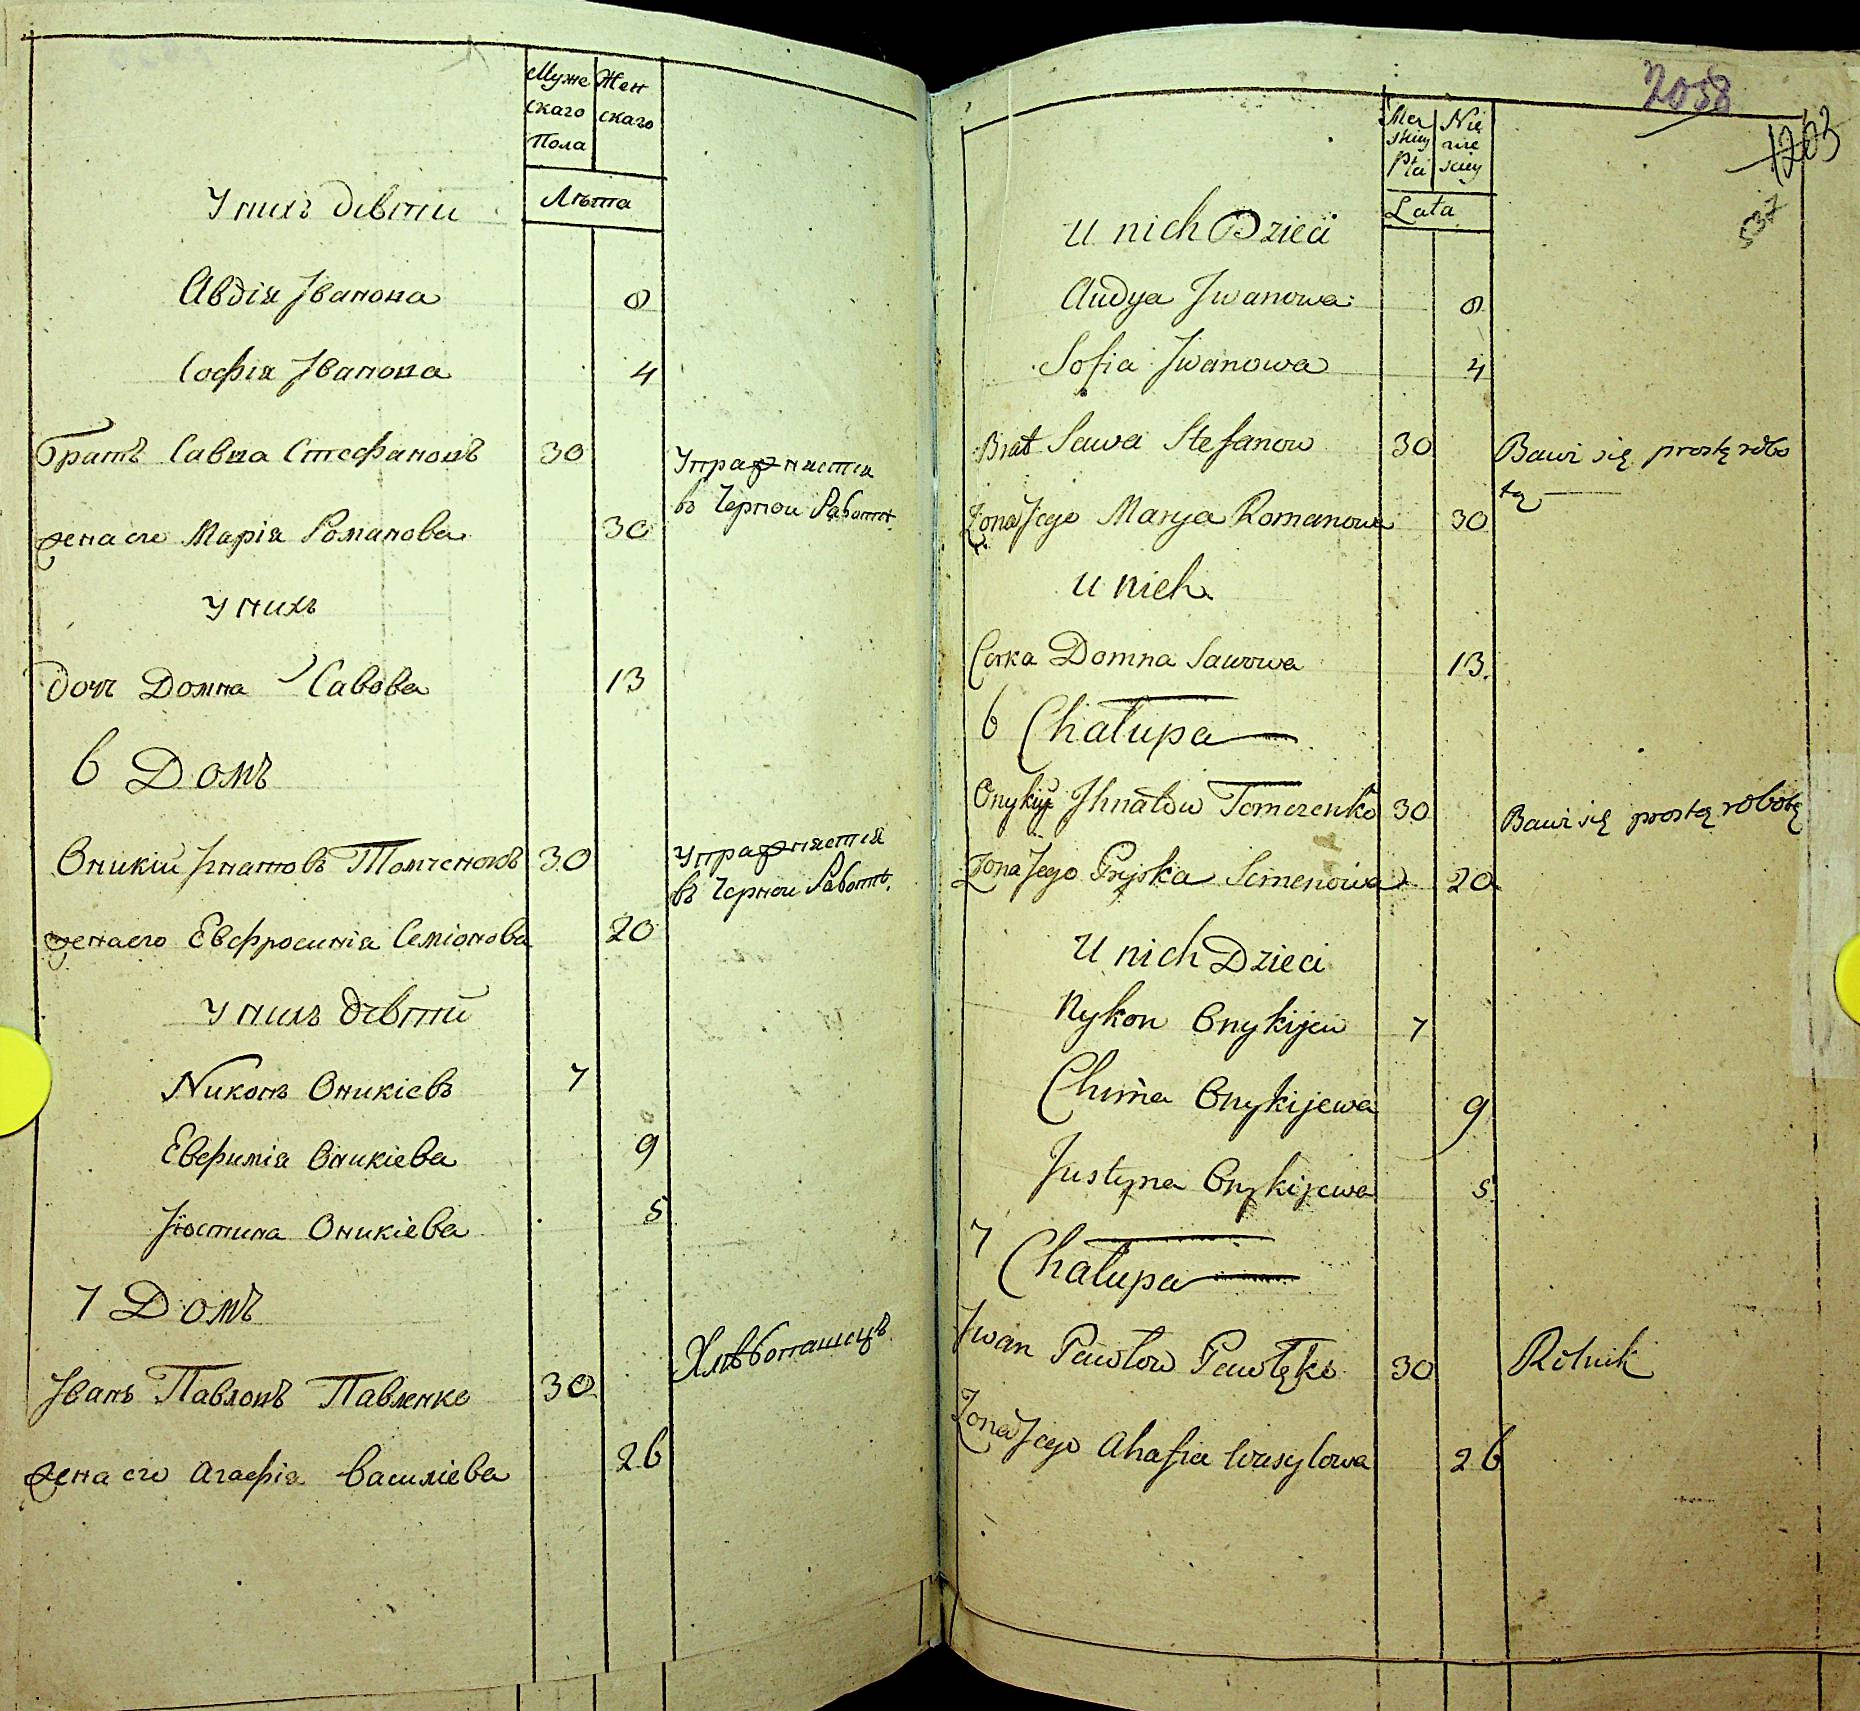 Муже Жен
скаго скаго
Пола
Лѣта
У нихъ дѣти
Авдія Іванова 8
Софія Іванова 4
Братъ Савва Стефановъ 30 Упражняется
въ Чорной Работѣ
жена его Марія Романова 30
У нихъ
дочь Домна Савова 13
6 Домъ
Оникій Ігнатовъ Томченокъ 30 Упражняется
въ Чорной Работѣ
жена его Евфросинія Семіонова 20
У нихъ дѣти
Никонъ Оникіевъ 7
Евфимія Оникіева 9
Іюстина Оникіева 5
7 Домъ
Іванъ Павловъ Павленко 30 Хлѣбопашецъ
жена его Агафія Василіева 26
2058
1203
537
Męz Nie
skiey wie
Płci sciey
Lata
U nich Dzieci
Audya Jwanowa 8
Sofia Jwanowa 4
Brat Sawa Stefanow 30 Bawi się prostę robo
tą
Zona Jego Marya Romanowa 30
U nich
Corka Domna Sawowa 13
6 Chałupa
Onykiy Jhnatow Tomczenko 30 Bawi się prostą robotę
Zona Jego Pryska Semenowa 20
U nich Dzieci
Nykon Onykijew 7
Chima Onykijewa 9
Justyna Onykijewa 5
7 Chałupa
Jwan Pawłow Pawłęko 30 Rolnik
Zona Jego Ahafia Wasylowa 26